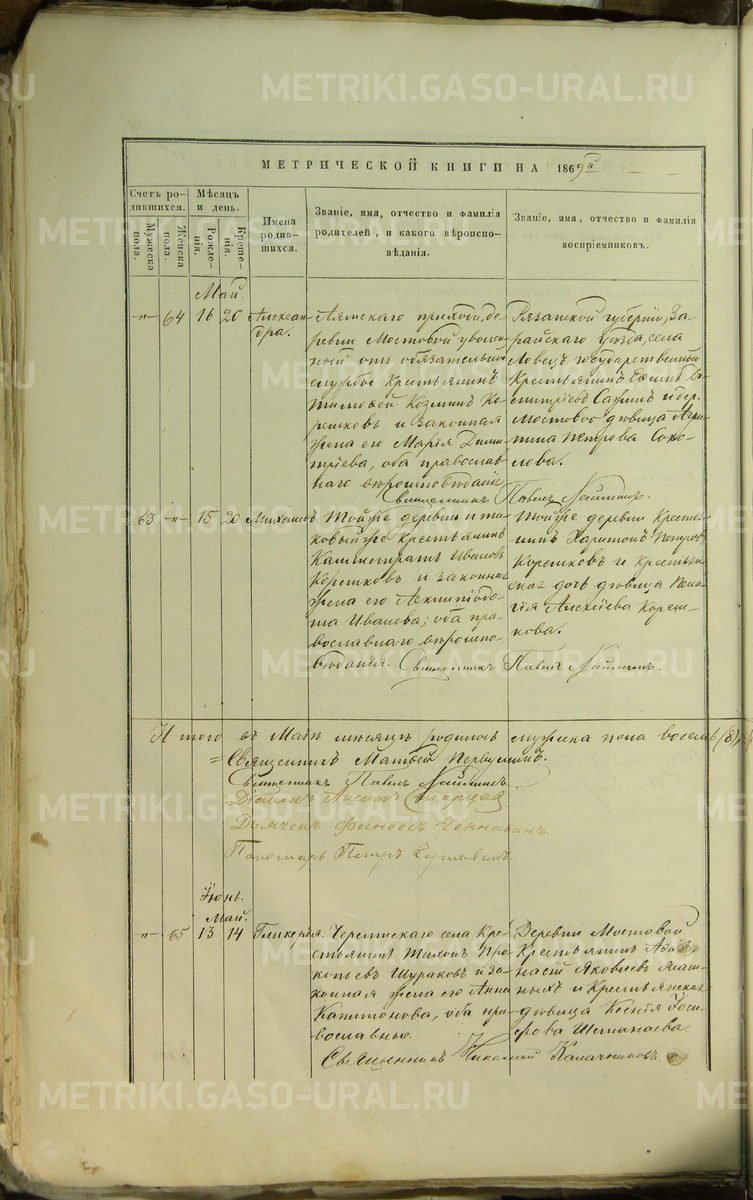 МЕТРИЧЕСКОЙ КНИГИ НА 1869й
Счетъ ро-
дившихся.
Мѣсяцъ
и день.
Мужеска
пола.
Женска
пола.
Рожде-
нія.
Креще-
нія.
Имена
родив-
шихся.
Званіе, имя, отчество и фамилія
родителей, и какого вѣроиспо-
вѣданія.
Званіе, имя, отчество и фамилія
воспріемниковъ.
Май.
-"- 64 16 20 Алексан-
дра.
Аятскаго прихода, де-
ревни Мостовой уволен-
ный отъ обязательной
службы Крестьянинъ
Тимофей Козминъ Ко-
решковъ и законная
жена его Марія Дими-
тріева, оба православ-
наго вѣроисповѣданія
Рязанской губерніи, За-
райскаго уѣзда, села
Ловецъ государственный
Крестьянинъ Ефимъ Ди-
митріевъ и дер.
Мостовой дѣвица Агри-
пина Петрова Соко-
лова.
Священникъ Павелъ
63 -"- 15 20 Михаилъ.
Тойже деревни и та-
ковый же Крестьянинъ
Калистратъ Ивановъ
Корешковъ и законная
жена его
Иванова; оба пра-
вославнаго вѣроиспо-
вѣданія.
Тойже деревни Кресть-
янинъ Харитонъ Петровъ
Корешковъ и Крестьян-
ская дочь дѣвица Пела-
гія Алексіева Кореш-
кова.
Священникъ Павелъ
Итого въ Маѣ мѣсяцѣ родилось мужеска пола восемь (8),
Священникъ Матѳей Первушинъ.
Священникъ Павелъ
Діаконъ
Дьячекъ Финеесъ Чернавинъ.
Пономарь Петръ
Іюнь.
Май.
-"- 65 13 14 Гликерія.
Черемискаго села Кре-
стьянинъ Тихонъ Про-
копьевъ Шураковъ и за-
конная жена его Анна
Капитонова, оба пра-
вославные.
Деревни Мостовой
Крестьянинъ Аѳа-
насій Яковлевъ
и Крестьянская
дѣвица Ксенія Іоси-
фова
Священникъ Николай Калачниковъ.
METRIKI.GASO-URAL.RU